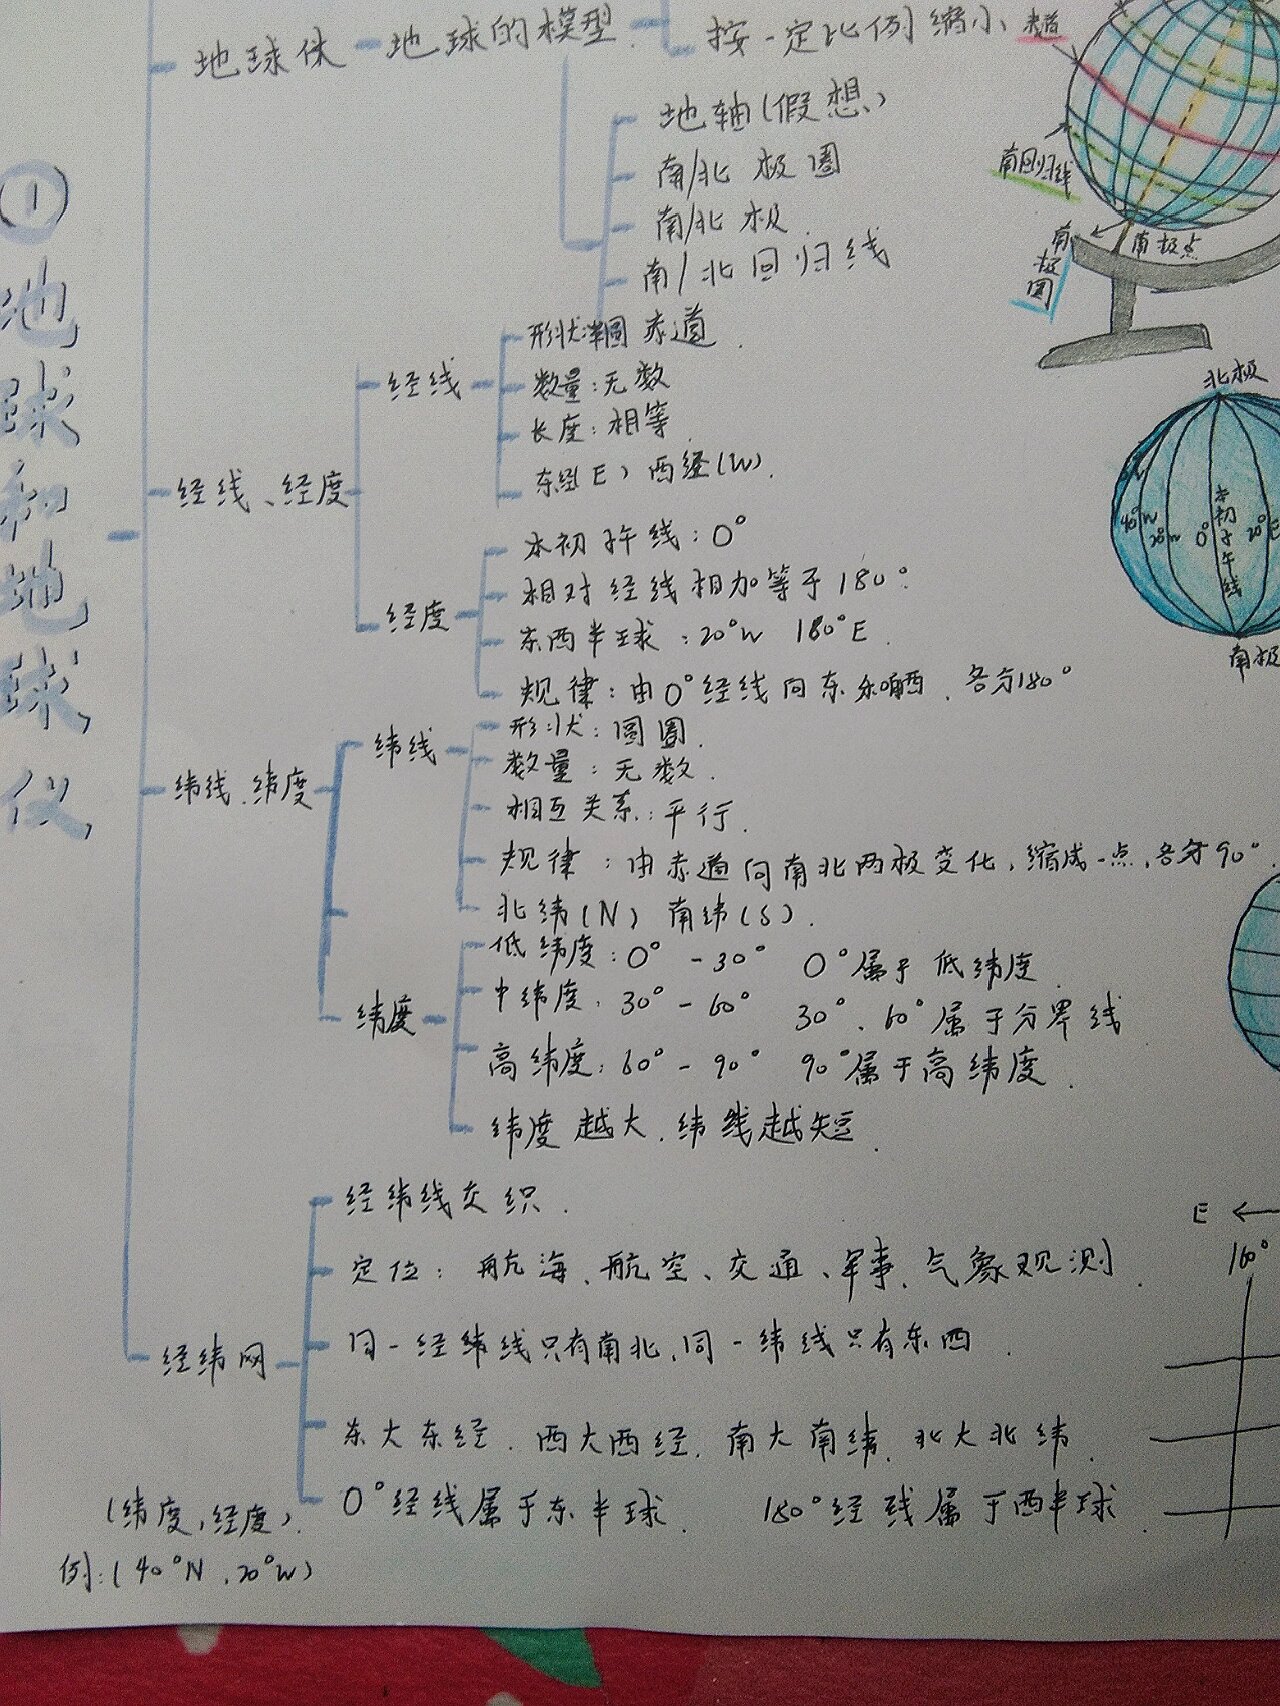 ① 地球和地球仪
地球体 - 地球的模型
按一定比例缩小
赤道
地轴(假想)
南/北极圈
南/北极
南/北回归线
赤道
南回归线
南极圈
南极点
经线、经度
经线
形状:半圆
数量:无数
长度:相等
东经(E) 西经(W)
经度
本初子午线:0°
相对经线相加等于180°
东西半球:20°W 160°E
规律:由0°经线向东和向西,各分180°
北极
40°W
20°W
0°
本初子午线
20°E
南极
纬线、纬度
纬线
形状:圆圈
数量:无数
相互关系:平行
规律:由赤道向南北两极变化,缩成一点,各分90°
北纬(N) 南纬(S)
纬度
低纬度:0°-30° 0°属于低纬度
中纬度:30°-60° 30°、60°属于分界线
高纬度:60°-90° 90°属于高纬度
纬度越大,纬线越短
经纬网
经纬线交织
定位:航海、航空、交通、军事、气象观测
同一经纬线只有南北,同一纬线只有东西
东大东经,西大西经,南大南纬,北大北纬
0°经线属于东半球 180°经线属于西半球
(纬度,经度)
例:(40°N,20°W)
E ←
160°